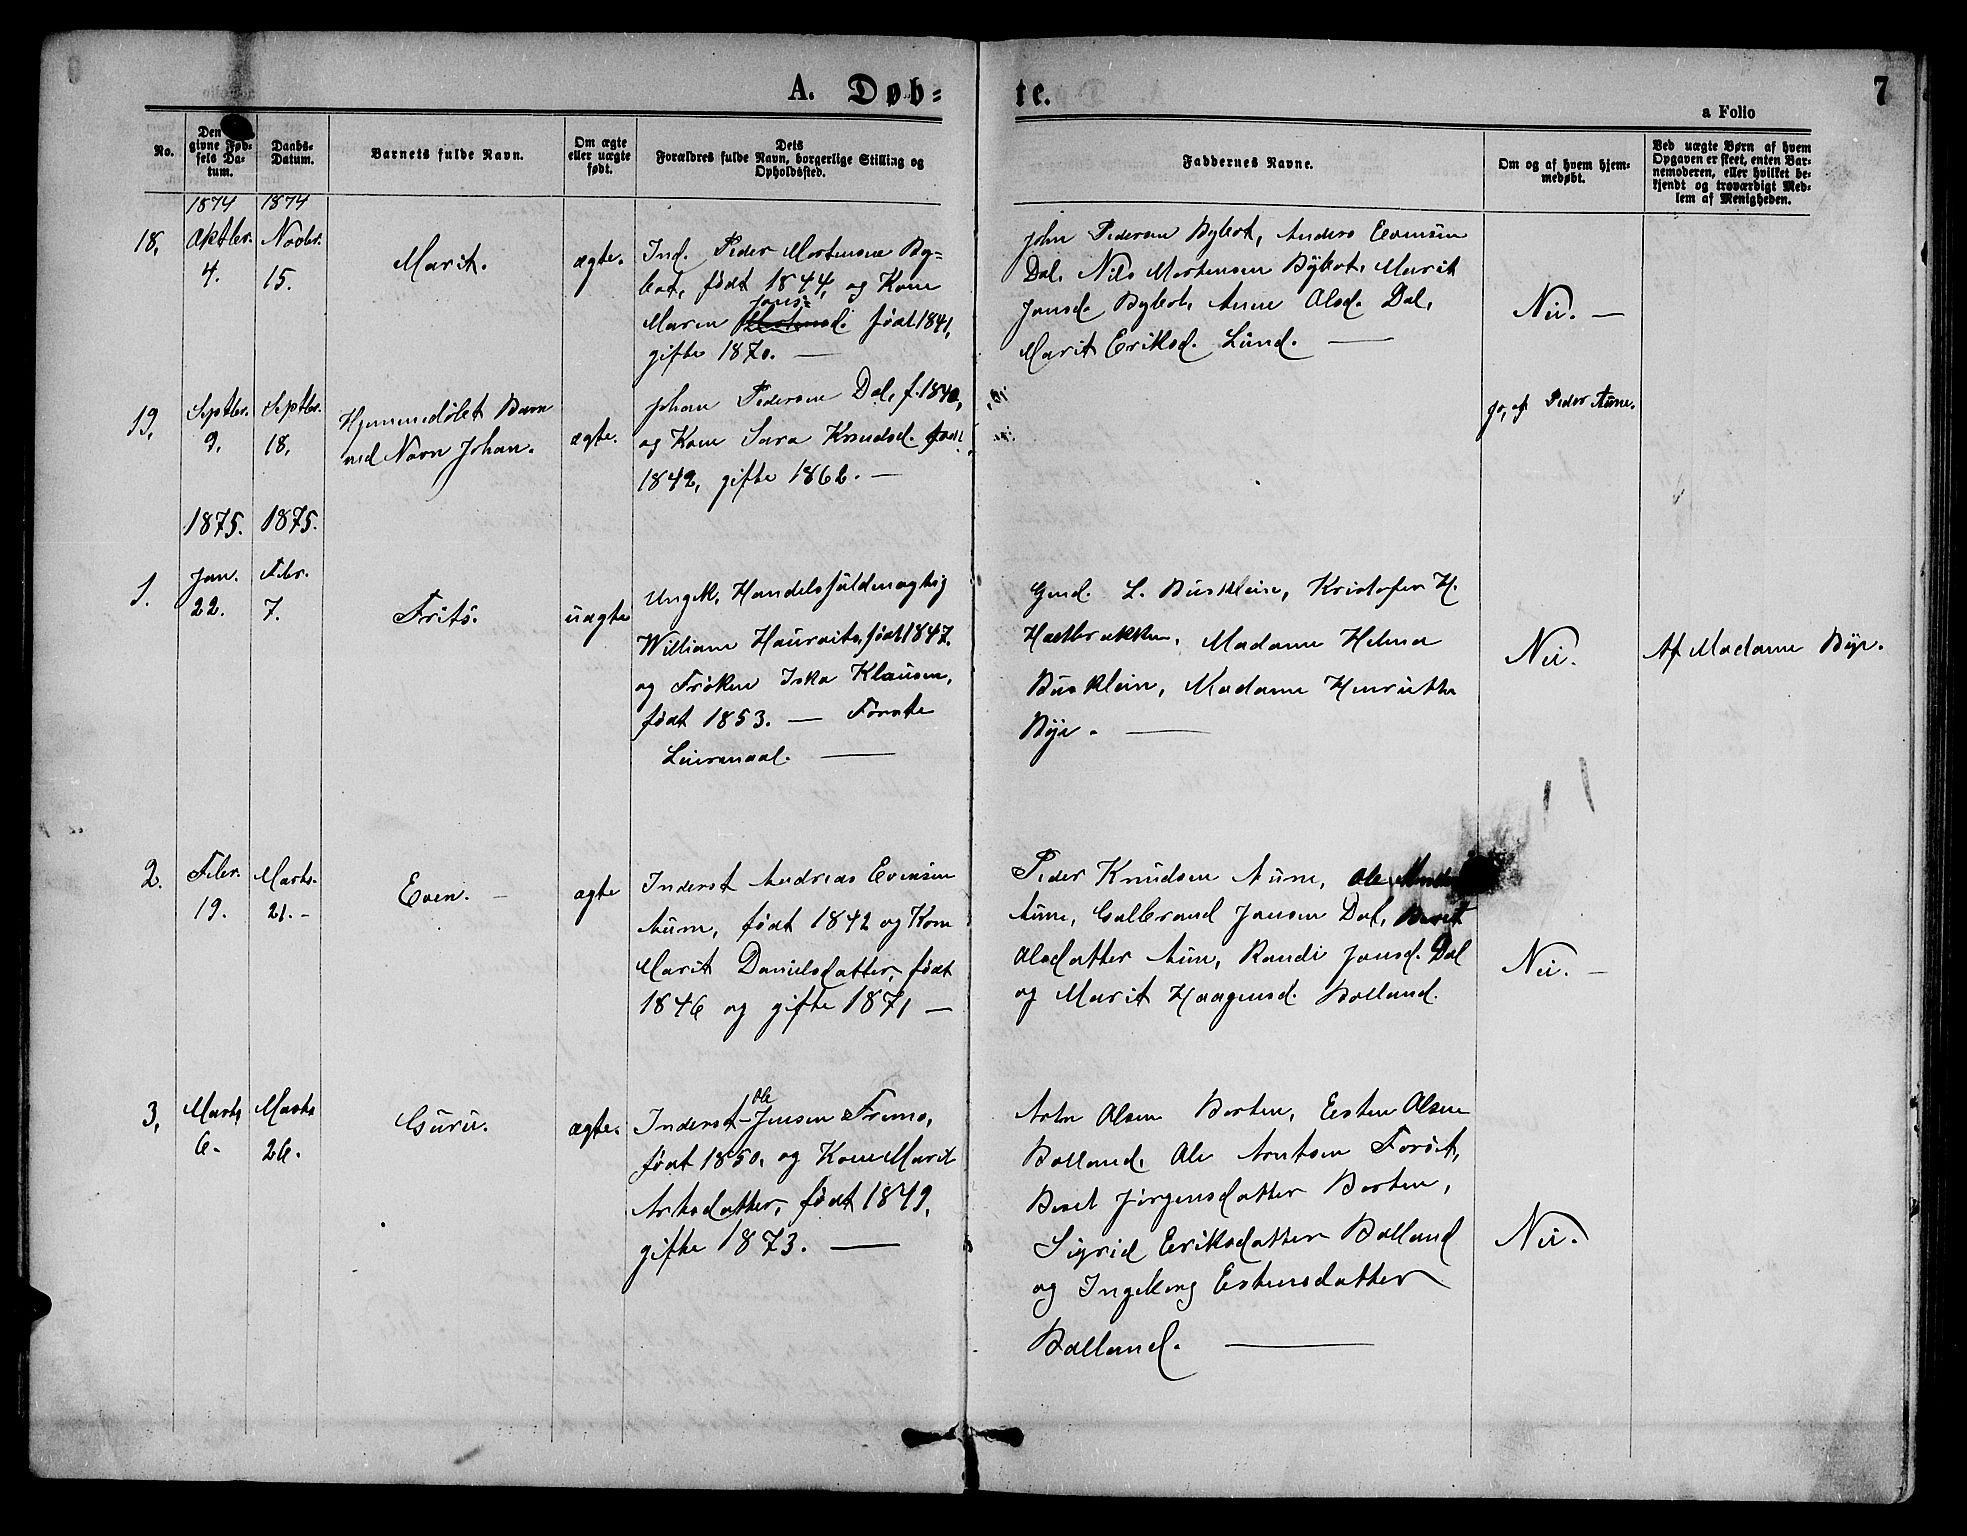 A. Døb=
te.
7
a Folio
No.
Den
givne Fød-
sels Da-
tum.
Daabs-
Datum.
Barnets fulde Navn.
Om ægte
eller uægte
født.
Dets
Forældres fulde Navn, borgerlige Stilling og
Opholdssted.
Faddernes Navne.
Om og af hvem hjem-
medøbt.
Ved uægte Børn af hvem
Opgaven er skeet, enten Bar-
nemoderen, eller hvilket be-
kjendt og troværdigt Med-
lem af Menigheden.
1874
1874
18,
Oktbr.
4.
Novbr.
15.
Marit.
ægte.
Ind. Peder Mortensen Byl=
født 1844, og Kone
Jons=
Maren født 1841,
gifte 1870. —
John Pedersen Anders Evensen
Dal, Nils Mortensen Marit
Jonsd. Anne Olsd. Dal,
Marit Eriksd. Lund. —
Nei. —
19,
Septbr.
9.
Septbr.
18,
Hjemmedøbt Barn
ved Navn Johan.
ægte.
Johan Pedersen Dal, f. 1840,
og Kone Sara Knudsd. født
1842, gifte 1862. —
Jo, af Peder Aune.
1875.
1875.
1.
Jan.
22.
Febr.
7.
Frits.
uægte
Ungk. Handelsfuldmægtig
William født 1847.
og Frøken Iska Klausen,
født 1853. — Første
Leiermaal. —
L. Busklein, Kristofer H.
Madame Helma
Busklein, Madame Henriette
Bye. —
Nei.
Af Madame Bye.
2.
Febr.
19.
Marts.
21. -
Even. -
ægte
Inderst Andreas Evensen
Aune, født 1842 og Kone
Marit Danielsdatter, født
1846 og gifte 1871 —
Peder Knudsen Aune, Ole
Aune, Gulbrand Jonsen Dal, Beret
Olsdatter Aune, Randi Jonsd. Dal
og Marit Haagensd. Bolland.
Nei. —
3,
Marts
6.
Marts
26.
Guru.
ægte.
Ole
Inderst Jensen Fremo,
født 1850, og Kone Marit
Arntsdatter, født 1849,
gifte 1873. —
Arnt Olsen Borten, Esten Olsen
Bolland, Ole Arntsen Forsit,
Beret Jørgensdatter Borten,
Sigrid Eriksdatter Bolland
og Ingeborg Estensdatter
Bolland. —
Nei.